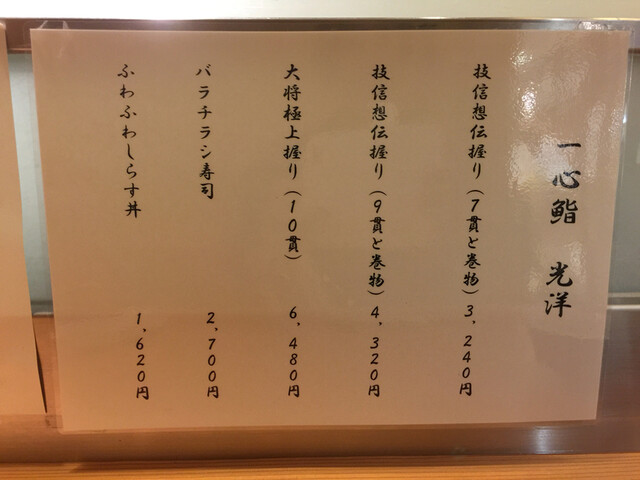 一心鮨　光洋
技信想伝握り(7貫と巻物)3,240円
技信想伝握り(9貫と巻物)4,320円
大将極上握り(10貫)　6,480円
バラチラシ寿司　2,700円
ふわふわしらす丼　1,620円